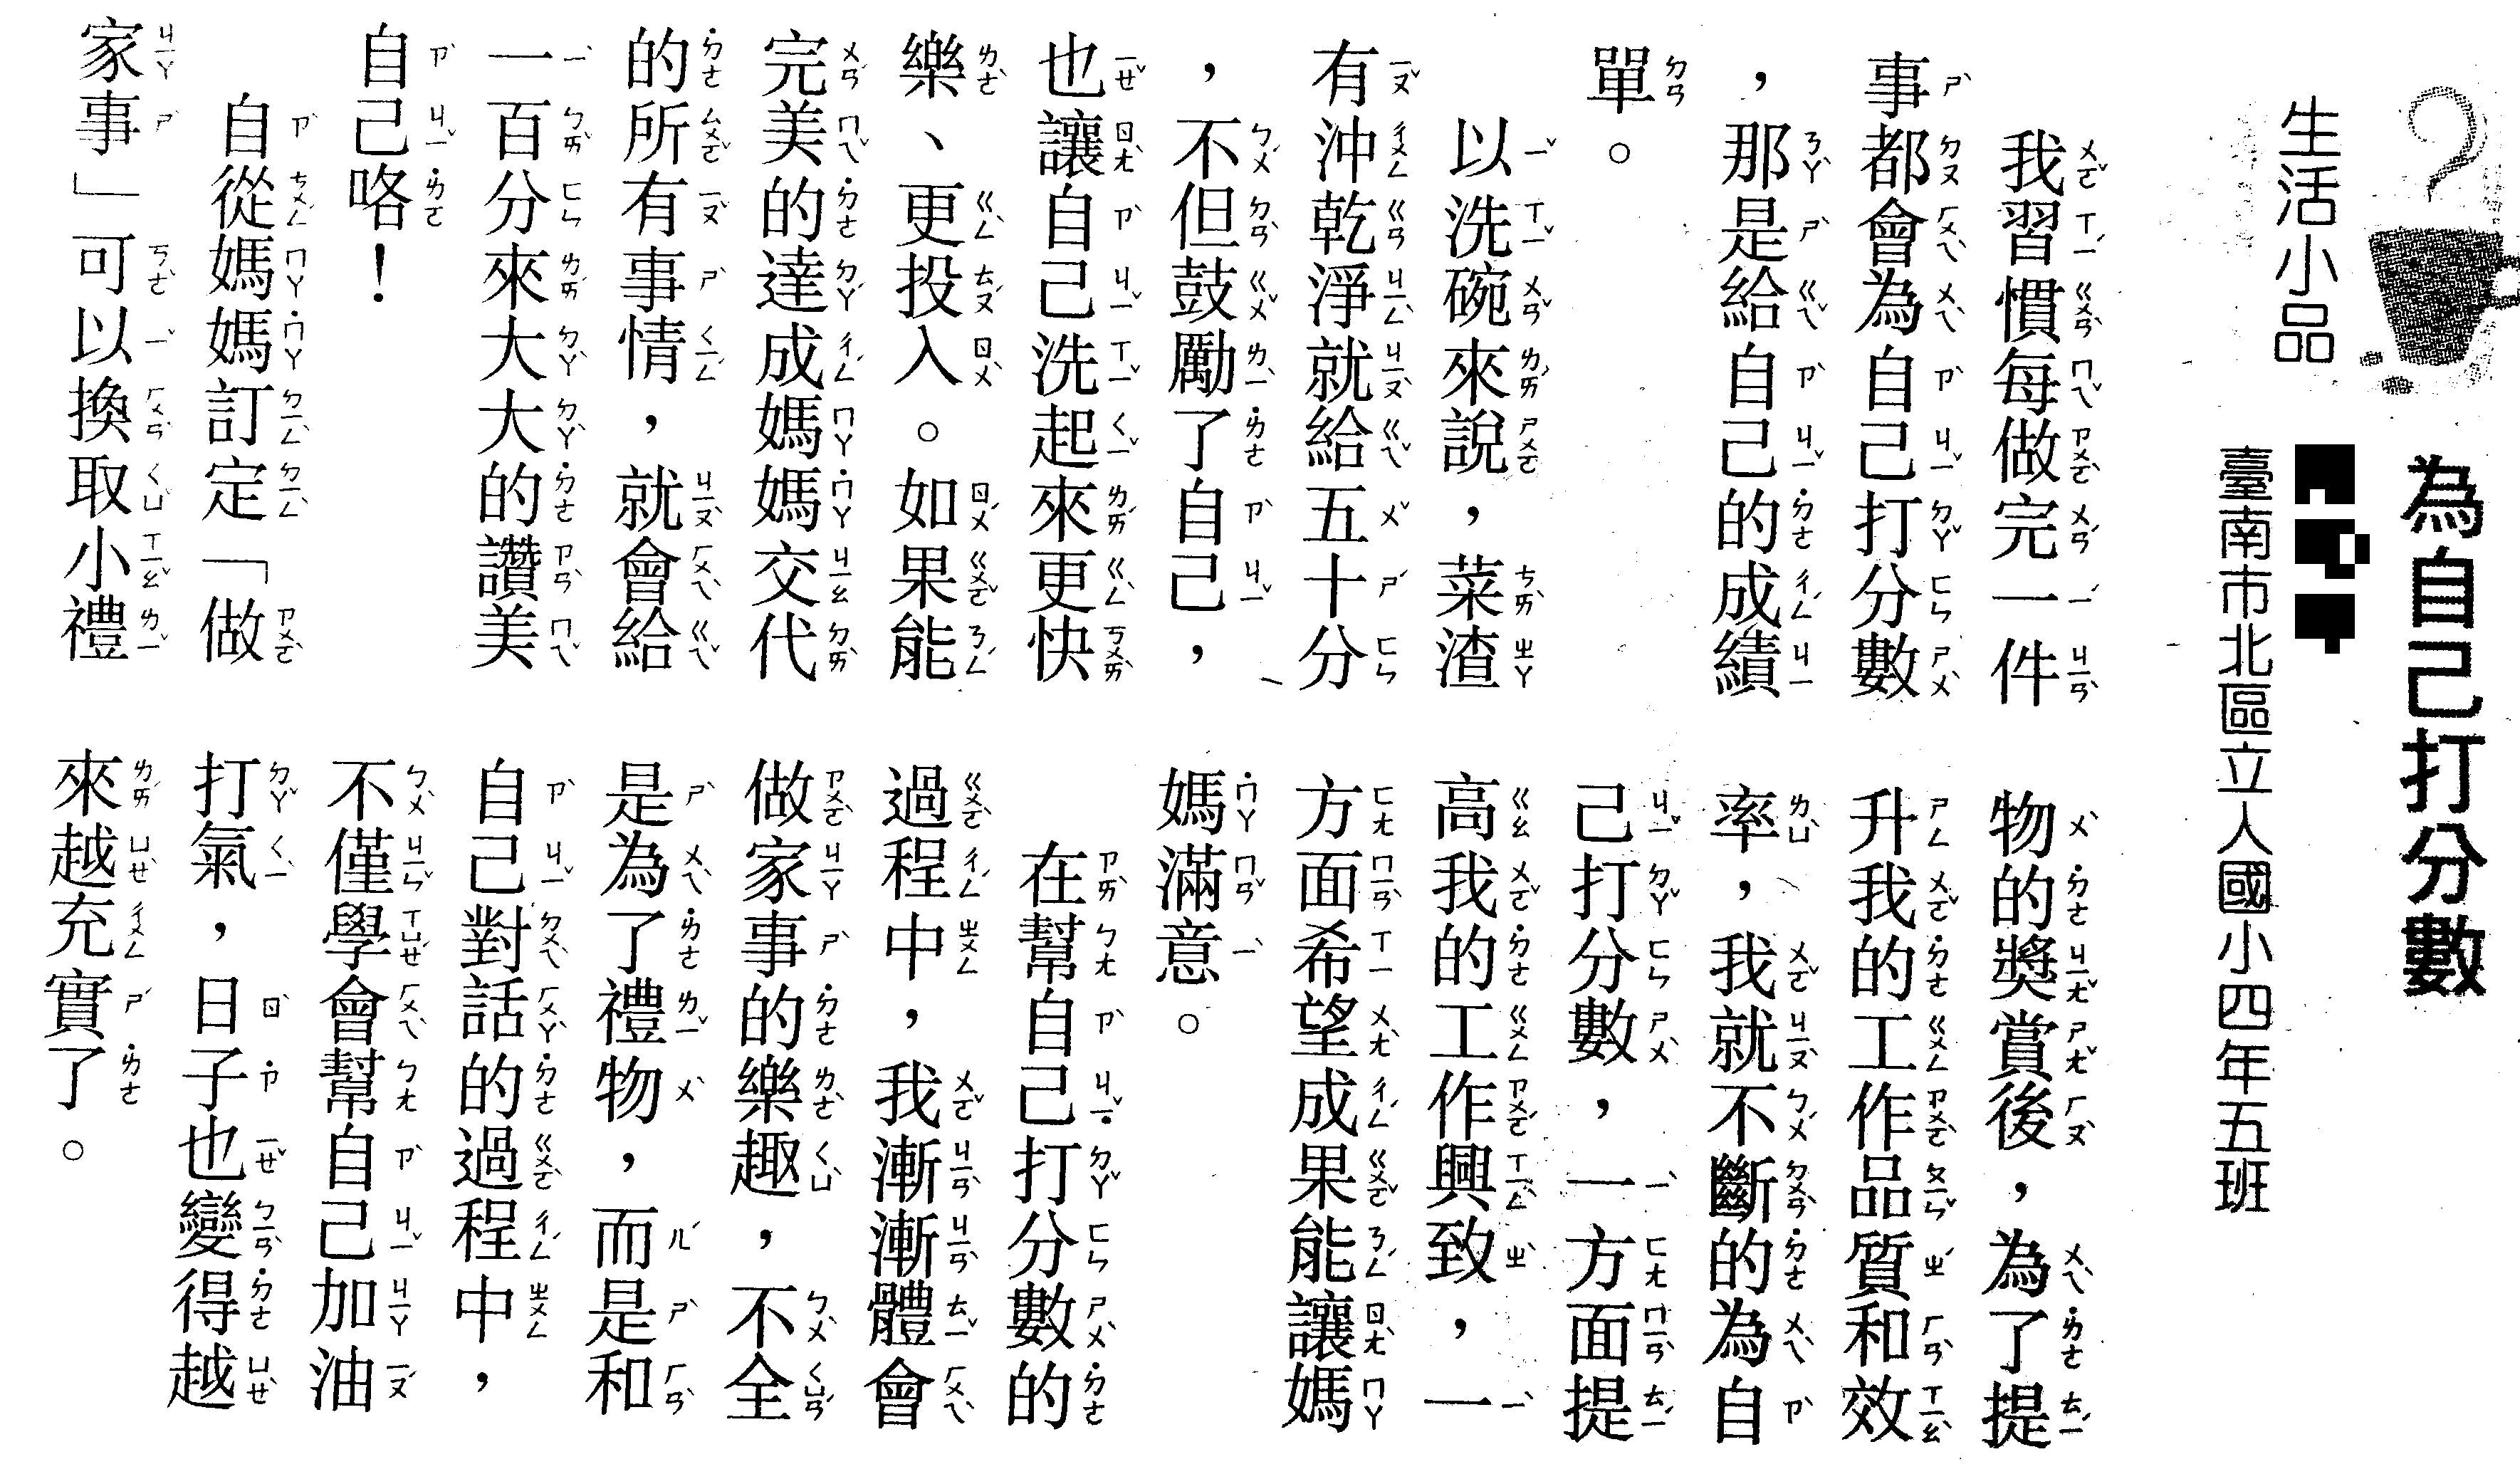 生活小品
為自己打分數
臺南市北區立人國小四年五班
我習慣每做完一件
事都會為自己打分數
，那是給自己的成績
單。
以洗碗來說，菜渣
有沖乾淨就給五十分
，不但鼓勵了自己，
也讓自己洗起來更快
樂、更投入。如果能
完美的達成媽媽交代
的所有事情，就會給
一百分來大大的讚美
自己咯！
自從媽媽訂定「做
家事」可以換取小禮
物的獎賞後，為了提
升我的工作品質和效
率，我就不斷的為自
己打分數，一方面提
高我的工作興致，一
方面希望成果能讓媽
媽滿意。
在幫自己打分數的
過程中，我漸漸體會
做家事的樂趣，不全
是為了禮物，而是和
自己對話的過程中，
不僅學會幫自己加油
打氣，日子也變得越
來越充實了。